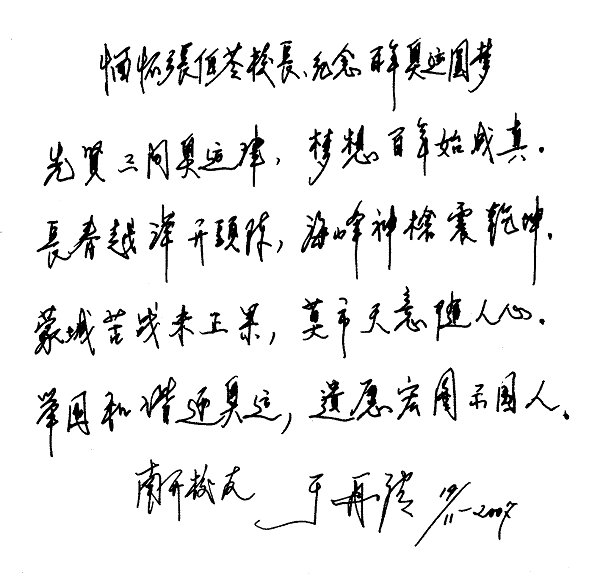 缅怀張伯苓校長、纪念百年奥运圆梦
先贤三问奥运津，梦想百年始成真．
長春越洋开頭陈，海峰神槍震乾坤．
蒙城苦战未正果，莫市天意随人心．
举国和谐迎奥运，遗愿宏图示国人．
南开校友 于再清 19/11-2007